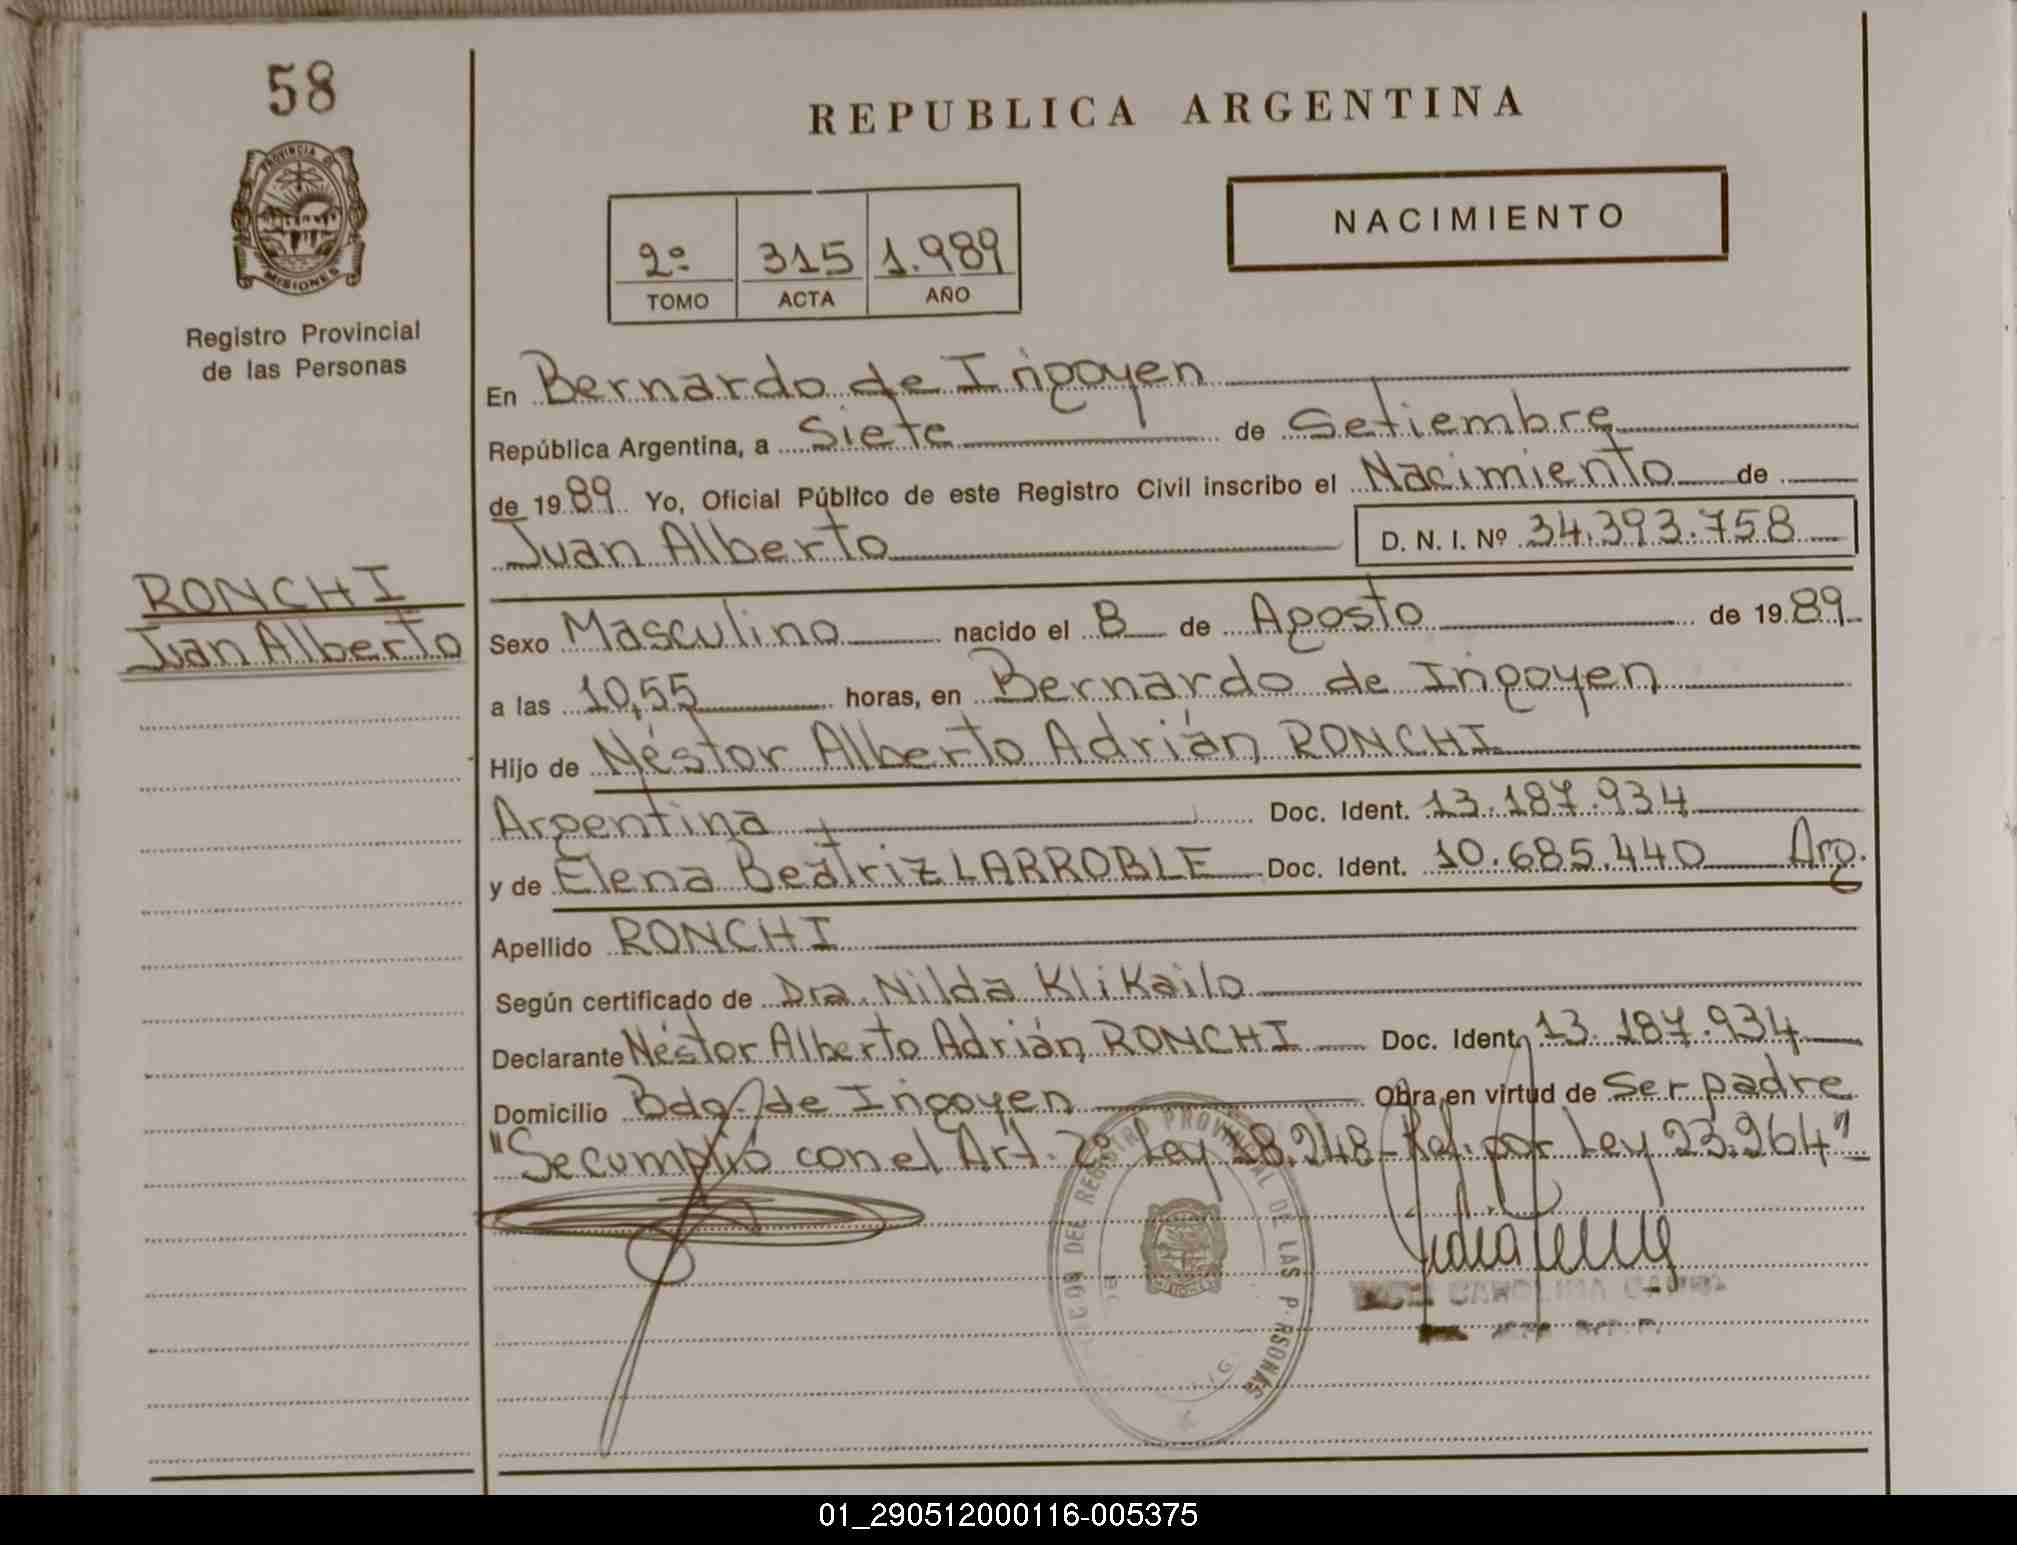 58
PROVINCIA DE
MISIONES
Registro Provincial
de las Personas
RONCHI
Juan Alberto
REPUBLICA ARGENTINA
2º 315 1.989
TOMO ACTA AÑO
NACIMIENTO
En Bernardo de Irigoyen
República Argentina, a Siete de Setiembre
de 1989 Yo, Oficial Público de este Registro Civil inscribo el Nacimiento de
Juan Alberto D. N. I. Nº 34.393.758
Sexo Masculino nacido el 8 de Agosto de 1989
a las 10,55 horas, en Bernardo de Irigoyen
Hijo de Néstor Alberto Adrián RONCHI
Argentina Doc. Ident. 13.187.934
y de Elena Beatriz LARROBLE Doc. Ident. 10.685.440 Arg.
Apellido RONCHI
Según certificado de Dra. Nilda Klikailo
Declarante Néstor Alberto Adrián RONCHI Doc. Ident. 13.187.934
Domicilio Bdo. de Irigoyen Obra en virtud de Ser padre
"Se cumplió con el Art. 2º Ley 18.248 - Ref. por Ley 23.264"
DEL REGISTRO PROVINCIAL DE LAS PERSONAS
CAROLINA
01_290512000116-005375